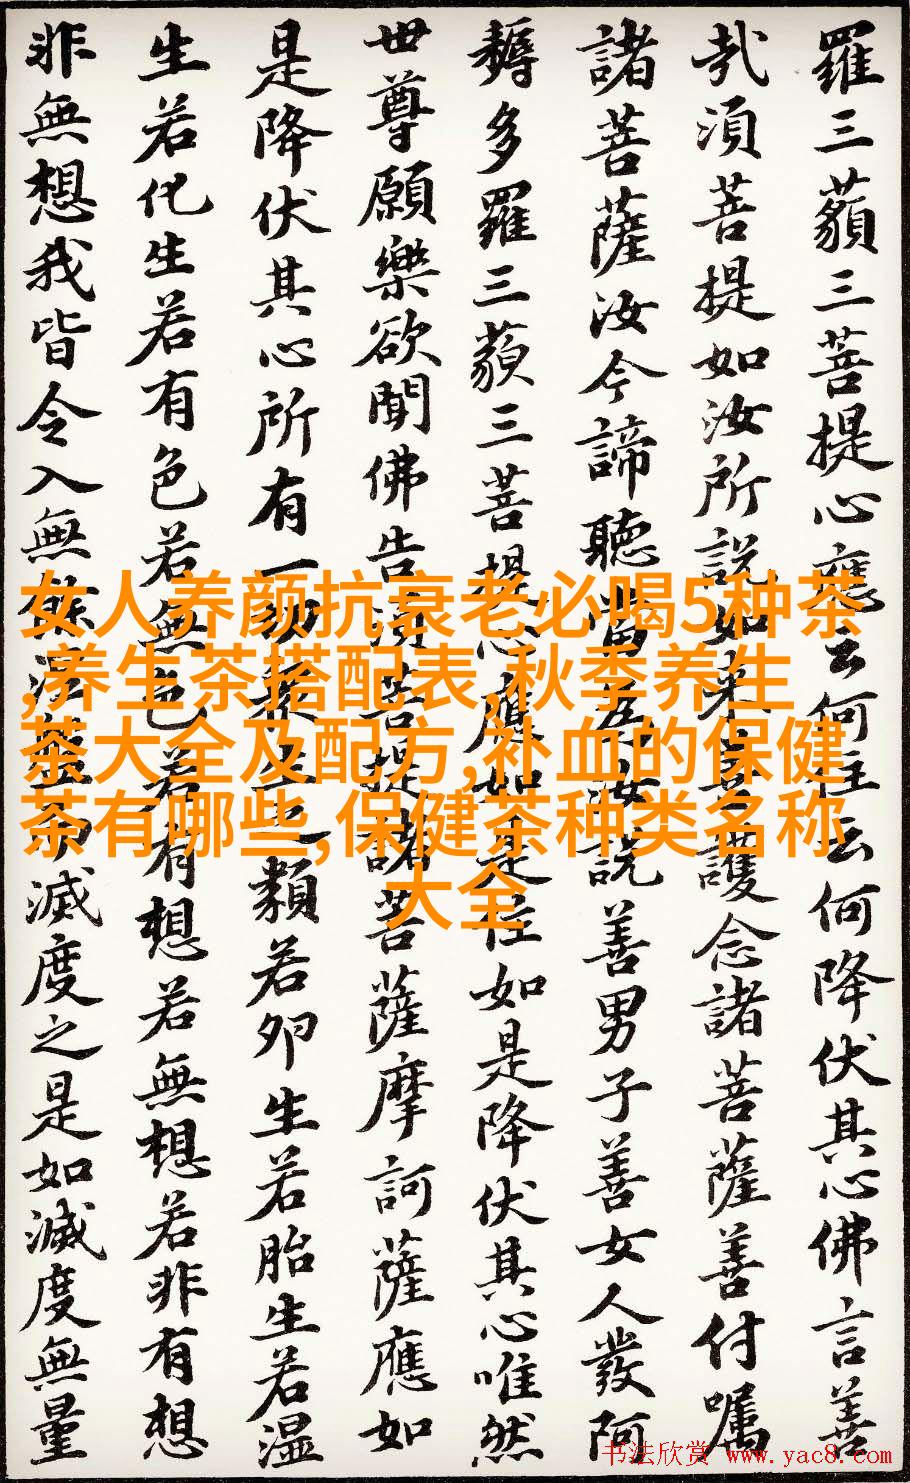 羅三藐三菩提心應云何住云何降伏其心佛言善
哉須菩提如汝所說如來善護念諸菩薩善付囑
諸菩薩汝今諦聽當為汝說善男子善女人發阿
耨多羅三藐三菩提心應如是住如是降伏其心唯然
世尊願樂欲聞佛告須菩提諸菩薩摩訶薩應如
是降伏其心所有一切眾生之類若卵生若胎生若溫
生若化生若有色若無色若有想若無想若非有想
非無想我皆令入無餘涅槃而滅度之是如滅度無量
女人养颜抗衰老必喝5种茶
,养生茶搭配表,秋季养生
茶大全及配方,补血的保健
茶有哪些,保健茶种类名称
大全
书法欣赏 www.yac8.com